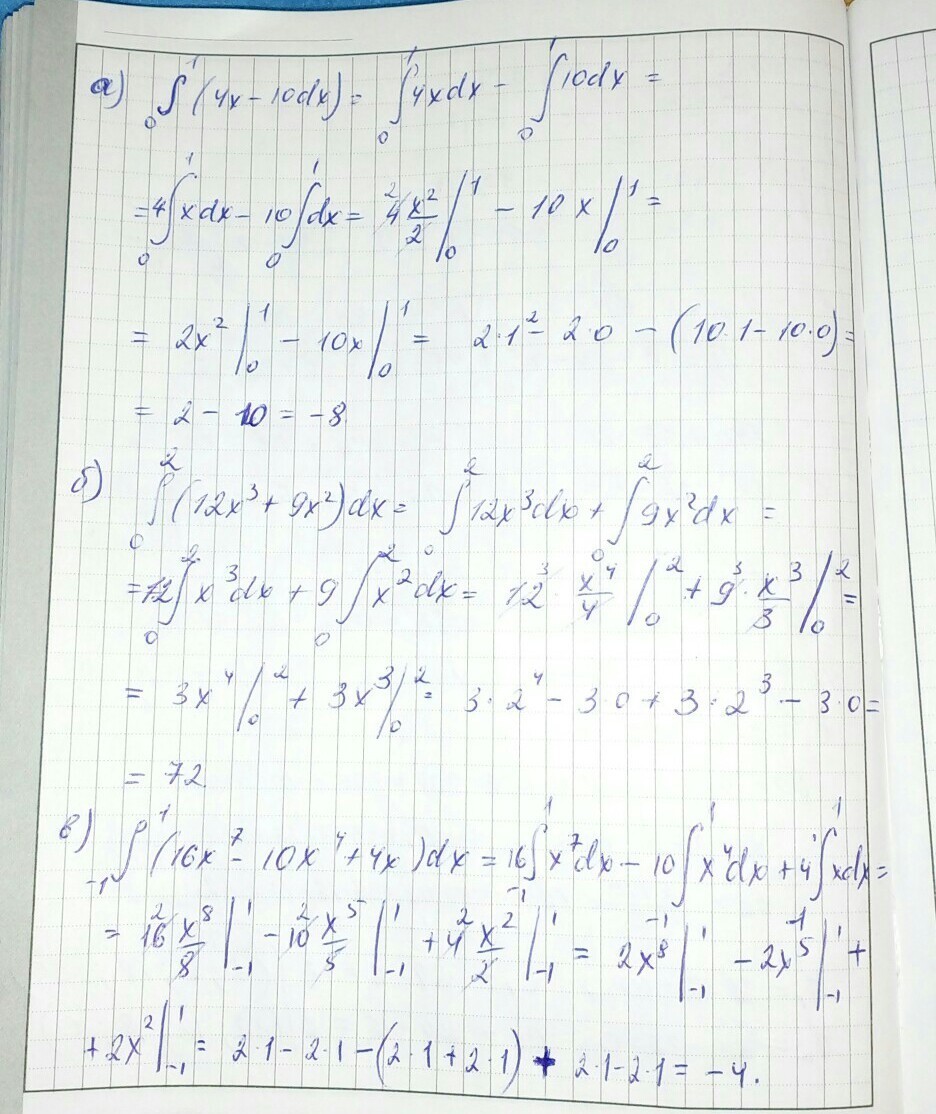 а) ∫₀¹ (4x − 10dx) = ∫₀¹ 4xdx − ∫₀¹ 10dx =
= 4∫₀¹ xdx − 10∫₀¹ dx = 4² x²/2 |₀¹ − 10x |₀¹ =
= 2x² |₀¹ − 10x |₀¹ = 2·1² − 2·0 − (10·1 − 10·0) =
= 2 − 10 = −8
б) ∫₀² (12x³ + 9x²)dx = ∫₀² 12x³dx + ∫₀² 9x²dx =
= 12∫₀² x³dx + 9∫₀² x²dx = 12³ · x⁴/4 |₀² + 9³ · x³/3 |₀² =
= 3x⁴ |₀² + 3x³ |₀² = 3·2⁴ − 3·0 + 3·2³ − 3·0 =
= 72
в) ∫₋₁¹ (16x⁷ − 10x⁴ + 4x)dx = 16∫₋₁¹ x⁷dx − 10∫₋₁¹ x⁴dx + 4∫₋₁¹ xdx =
= 16² x⁸/8 |₋₁¹ − 10² x⁵/5 |₋₁¹ + 4² x²/2 |₋₁¹ = 2x⁸ |₋₁¹ − 2x⁵ |₋₁¹ +
+ 2x² |₋₁¹ = 2·1 − 2·1 − (2·1 + 2·1) + 2·1 − 2·1 = −4.